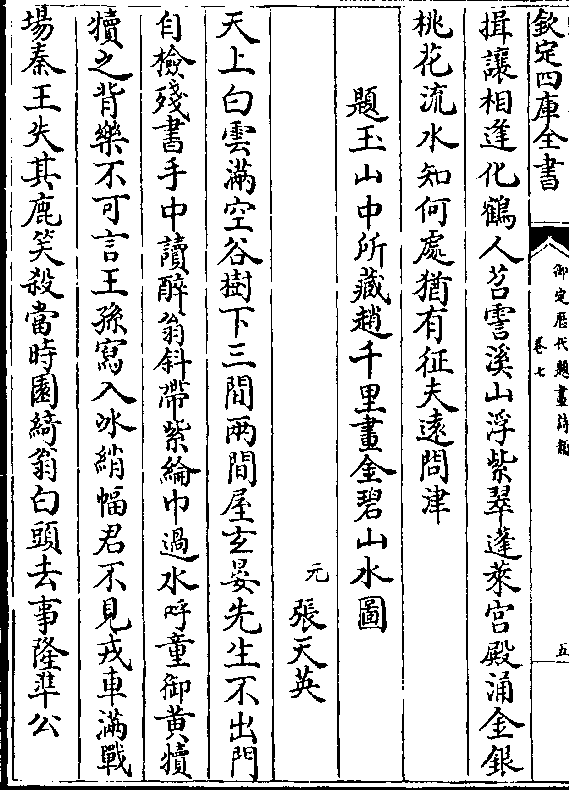 欽定四庫全書
御定歴代題畫詩類
卷七
五
揖讓相逢化鶴人苕霅溪山浮紫翠蓬萊宫殿涌金銀
桃花流水知何處猶有征夫遠問津
題玉山中所藏趙千里畫金碧山水圖
元 張天英
天上白雲滿空谷樹下三間兩間屋玄晏先生不出門
自檢殘書手中讀醉翁斜帶紫綸巾過水呼童御黄犢
犢之背樂不可言王孫寫入冰綃幅君不見戎車滿戰
場秦王失其鹿笑殺當時園綺翁白頭去事隆準公